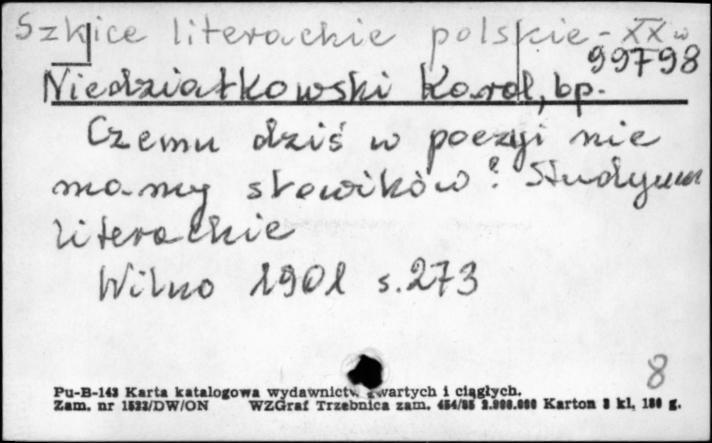 Szkice literackie polskie - XX w
99798
Niedziałkowski Karol, bp.
Czemu dziś w poezyi nie
mamy słowików? Studyum
literackie
Wilno 1901 s. 273
8
Pu-B-143 Karta katalogowa wydawnictw zwartych i ciągłych.
Zam. nr 1532/DW/ON WZGraf Trzebnica zam. 454/85 2.000.000 Karton 3 kl. 180 g.